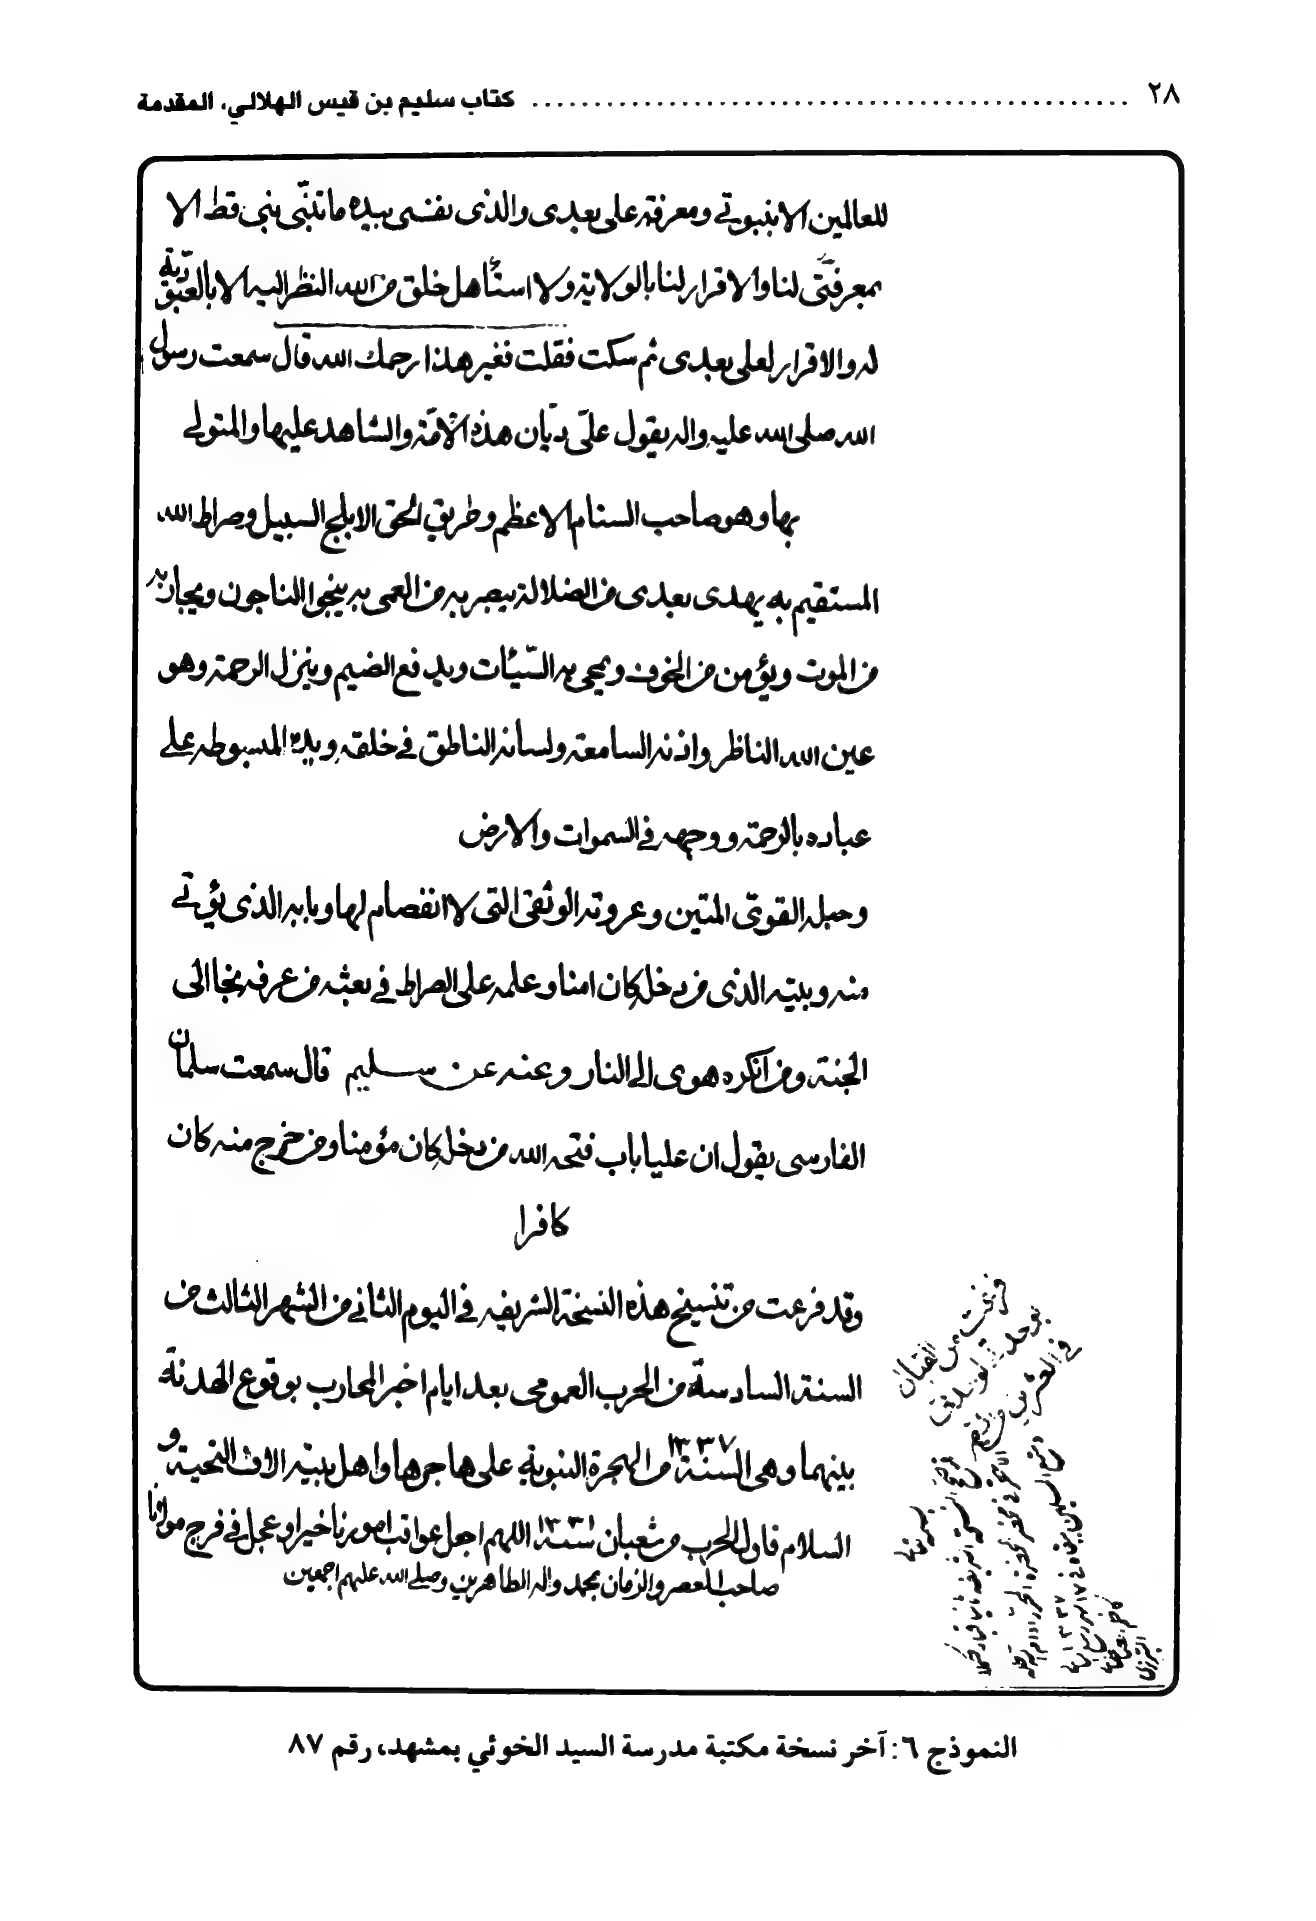 ٢٨ ........ كتاب سليم بن قيس الهلالي، المقدمة
للعالمين الا بنبوتي ومعرفته علي بعدى والذى نفسى بيده ما تنبّى نبى قط الا
بمعرفتى لنا والاقرار لنا بالولاية ولا استأهل خلق من الله النظر اليه الا بالعبوّدية
له والاقرار لعلى بعدى ثم سكت فقلت فغير هذا رحمك الله قال سمعت رسول
الله صلى الله عليه واله يقول علىّ ديّان هذه الامّة والشاهد عليها والمتولي
بها وهو صاحب السنام الاعظم وطريق الحق الابلج السبيل وصراط الله
المستقيم به يهدى بعدى من الضلالة يبصر به من العمى به ينجوا الناجون ويجار به
من الموت ويؤمن من الخوف ويمحى به السّيئات ويدفع الضيم وينزل الرحمة وهو
عين الله الناظر واذنه السامعة ولسانه الناطق في خلقه ويده المبسوطه علي
عباده بالرحمة ووجهه في السموات والارض
وحبله القوىّ المتين وعروته الوثقى التى لا انفصام لها وبابه الذى يؤتي
منه وبيته الذى من دخله كان امنا وعلمه على الصراط في بعثه من عرفه نجا الى
الجنة ومن انكره هوى الى النار وعنه عن سليم قال سمعت سلمان
الفارسى يقول ان عليا باب فتحه الله من دخله كان مؤمنا ومن خرج منه كان
كافرا
وقد فرغت من تنسيخ هذه النسخة الشريفه في اليوم الثاني من الشهر الثالث من
السنة السادسة من الحرب العمومى بعد ايام اخبر المحارب بوقوع الهدنة
بينهما وهى السنة ١٣٣٧ من الهجرة النبوية على هاجرها واهل بيته الاف التحية و
السلام فاول الحرب من شعبان سنة ١٣٣١ اللهم اجعل عواقب امورنا خيرا وعجل في فرج مولانا
صاحب العصر والزمان بمحمد واله الطاهرين وصلي الله عليهم اجمعين
النموذج ٦: آخر نسخة مكتبة مدرسة السيد الخوئي بمشهد، رقم ٨٧